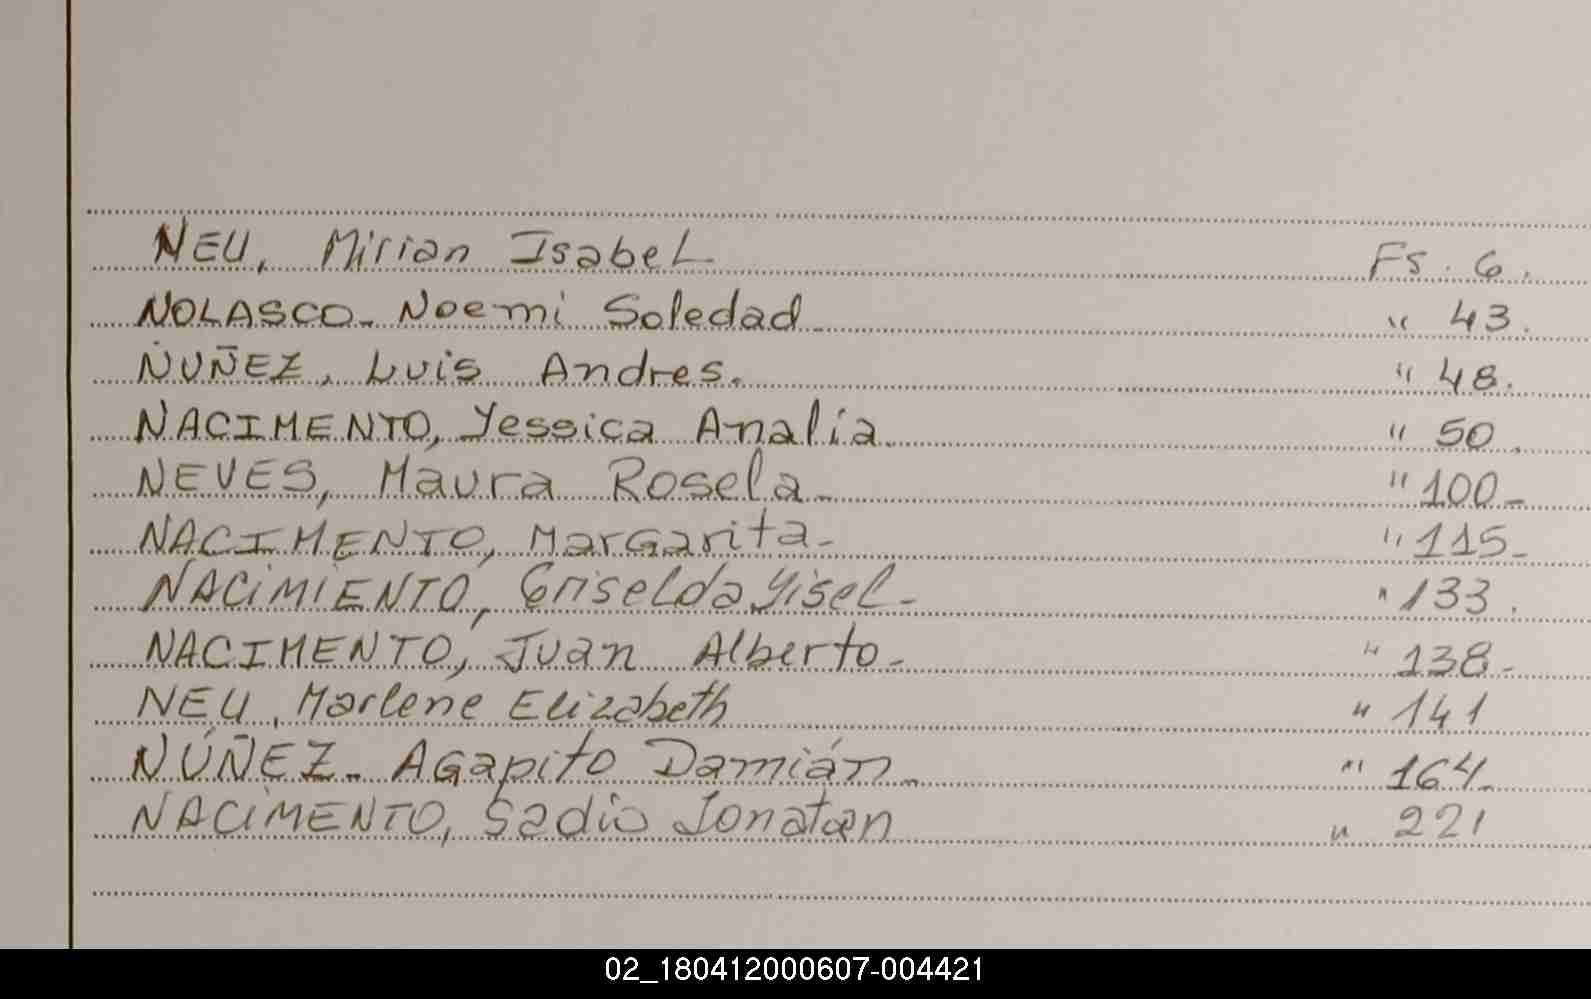 NEU, Mirian Isabel Fs. 6.
NOLASCO- Noemi Soledad " 43.
NUÑEZ, Luis Andres. " 48.
NACIMENTO, Yessica Analía. " 50.
NEVES, Maura Rosela- " 100-
NACIMENTO, Margarita- " 115-
NACIMIENTO, Griselda Yisel- " 133.
NACIMENTO, Juan Alberto- " 138-
NEU, Marlene Elizabeth " 141
NÚÑEZ- Agapito Damián- " 164-
NACIMENTO, Sadio Jonatan " 221
02_180412000607-004421